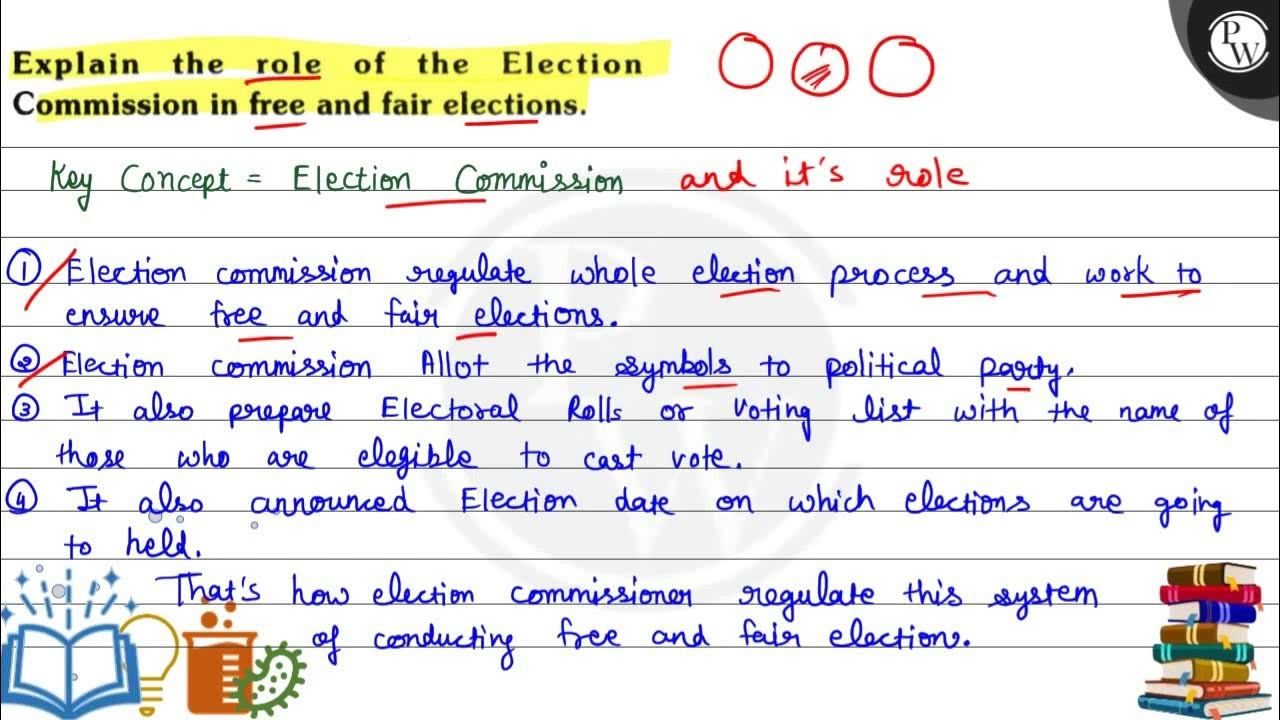 Explain the role of the Election
Commission in free and fair elections.
PW
Key Concept = Election Commission and it's role
① Election commission regulate whole election process and work to
ensure free and fair elections.
② Election commission Allot the symbols to political party.
③ It also prepare Electoral Rolls or Voting list with the name of
those who are elegible to cast vote.
④ It also announced Election date on which elections are going
to held.
That's how election commissioner regulate this system
of conducting free and fair election.